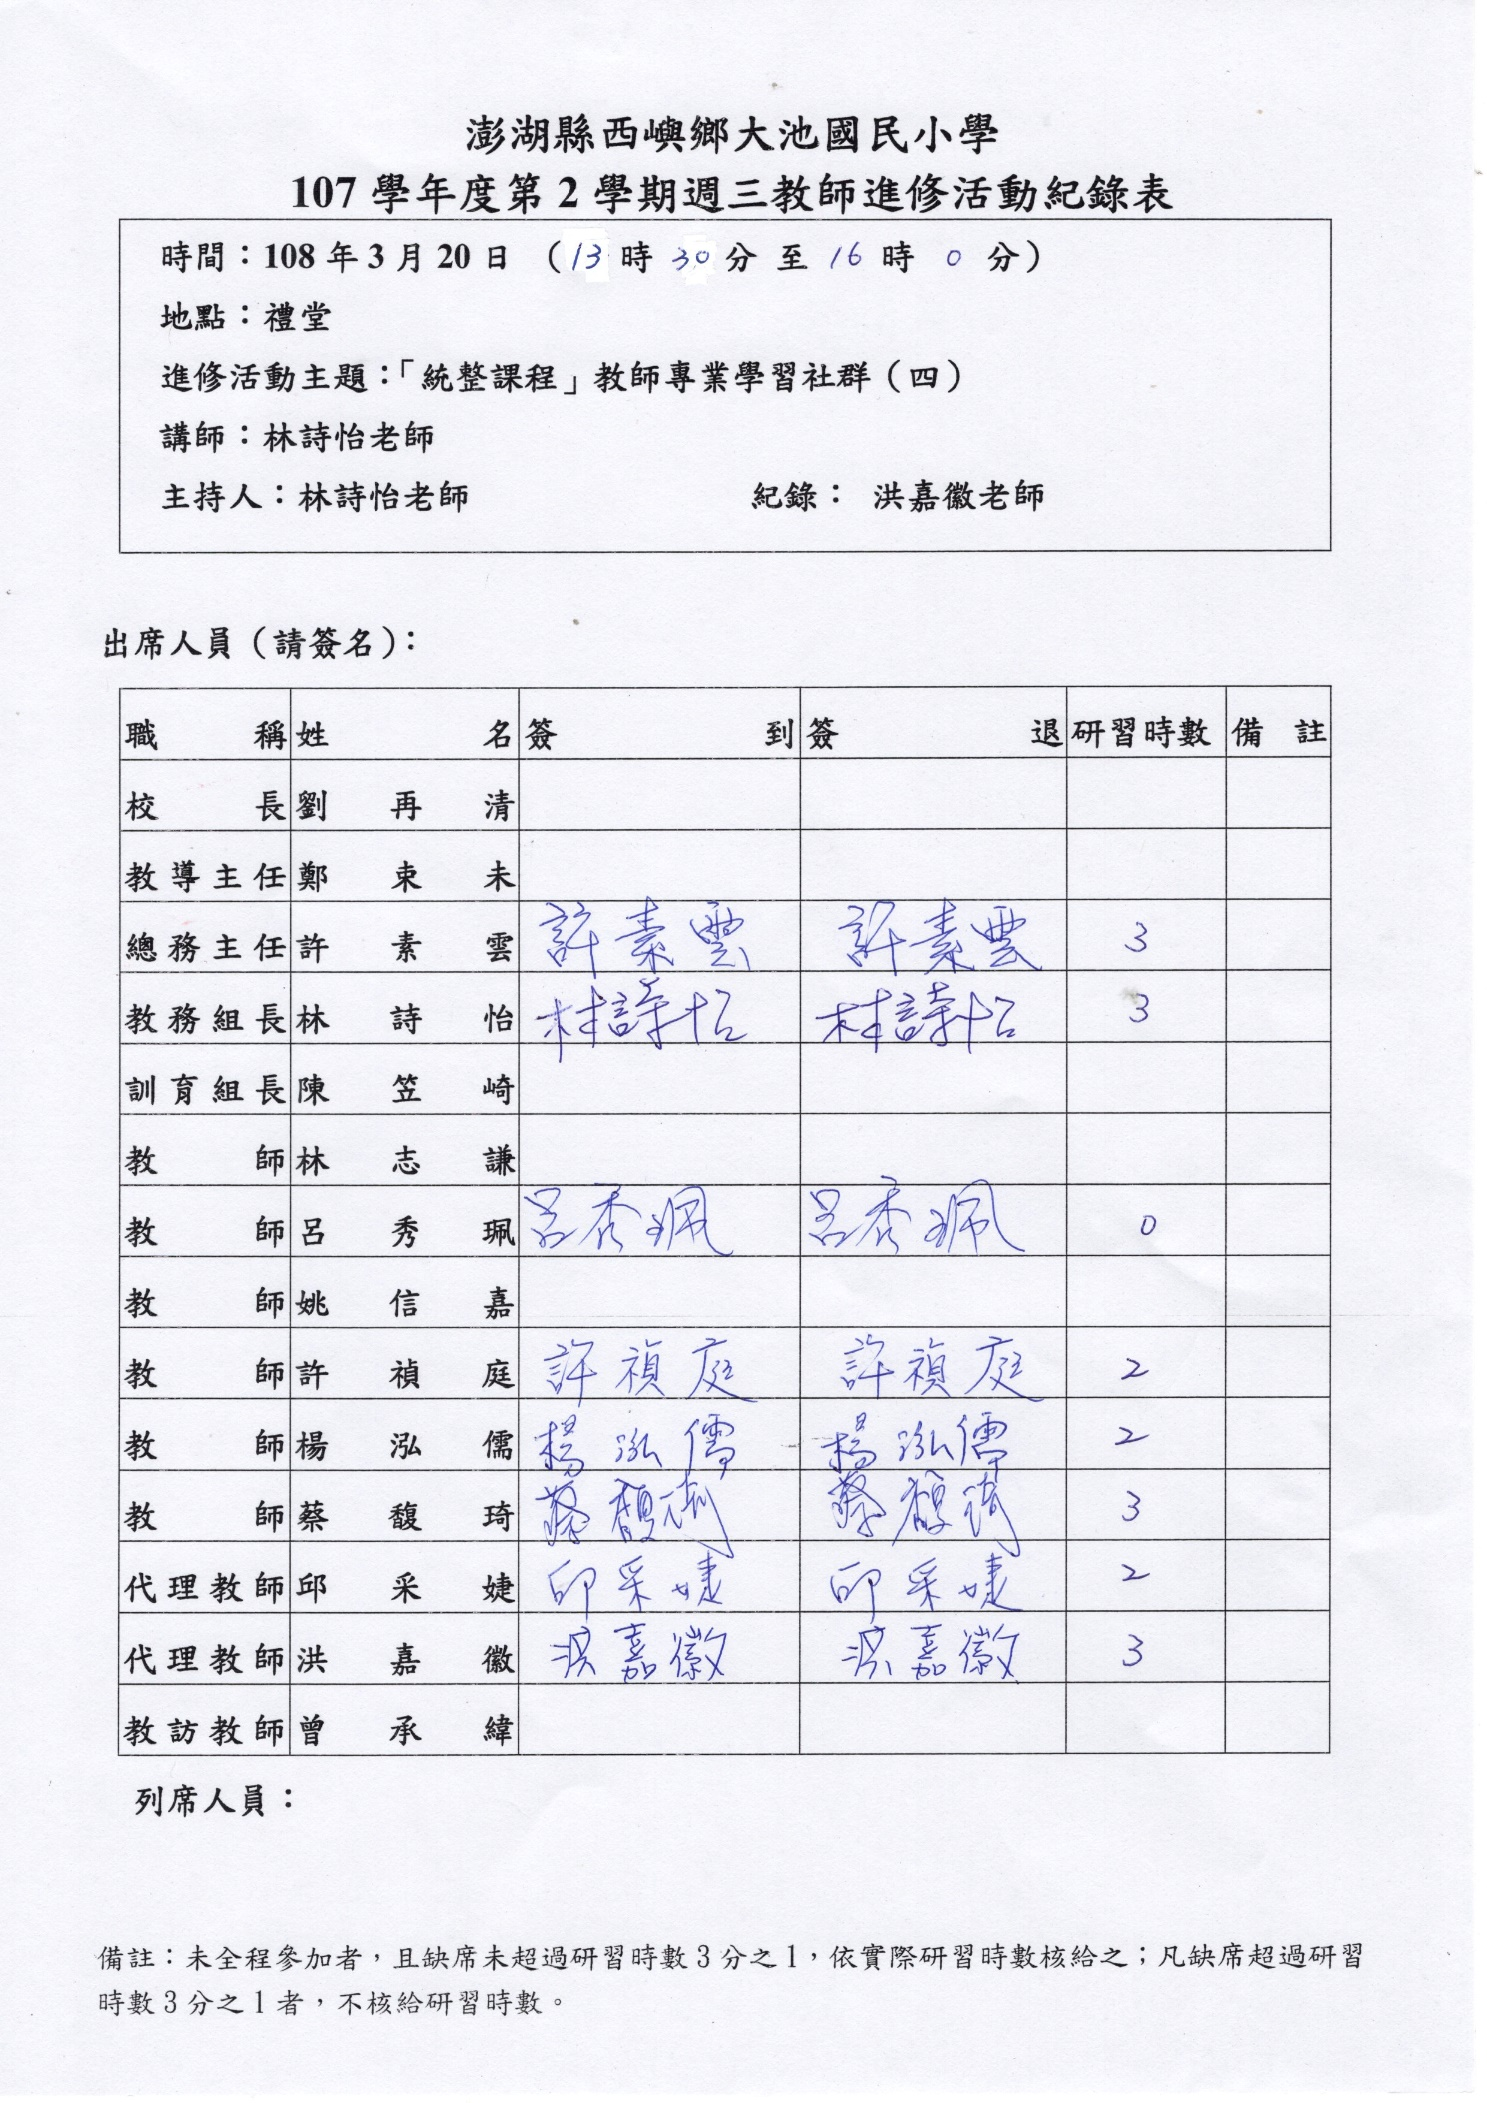 澎湖縣西嶼鄉大池國民小學
107 學年度第 2 學期週三教師進修活動紀錄表
時間：108 年 3 月 20 日 （13 時 30 分 至 16 時 0 分）
地點：禮堂
進修活動主題：「統整課程」教師專業學習社群（四）
講師：林詩怡老師
主持人：林詩怡老師 紀錄： 洪嘉徽老師
出席人員（請簽名）：
職稱 姓名 簽到 簽退 研習時數 備註
校長 劉再清
教導主任 鄭束未
總務主任 許素雲 許素雲 許素雲 3
教務組長 林詩怡 林詩怡 林詩怡 3
訓育組長 陳笠崎
教師 林志謙
教師 呂秀珮 呂秀珮 呂秀珮 0
教師 姚信嘉
教師 許禎庭 許禎庭 許禎庭 2
教師 楊泓儒 楊泓儒 楊泓儒 2
教師 蔡馥琦 蔡馥琦 蔡馥琦 3
代理教師 邱采婕 邱采婕 邱采婕 2
代理教師 洪嘉徽 洪嘉徽 洪嘉徽 3
教訪教師 曾承緯
列席人員：
備註：未全程參加者，且缺席未超過研習時數 3 分之 1，依實際研習時數核給之；凡缺席超過研習
時數 3 分之 1 者，不核給研習時數。